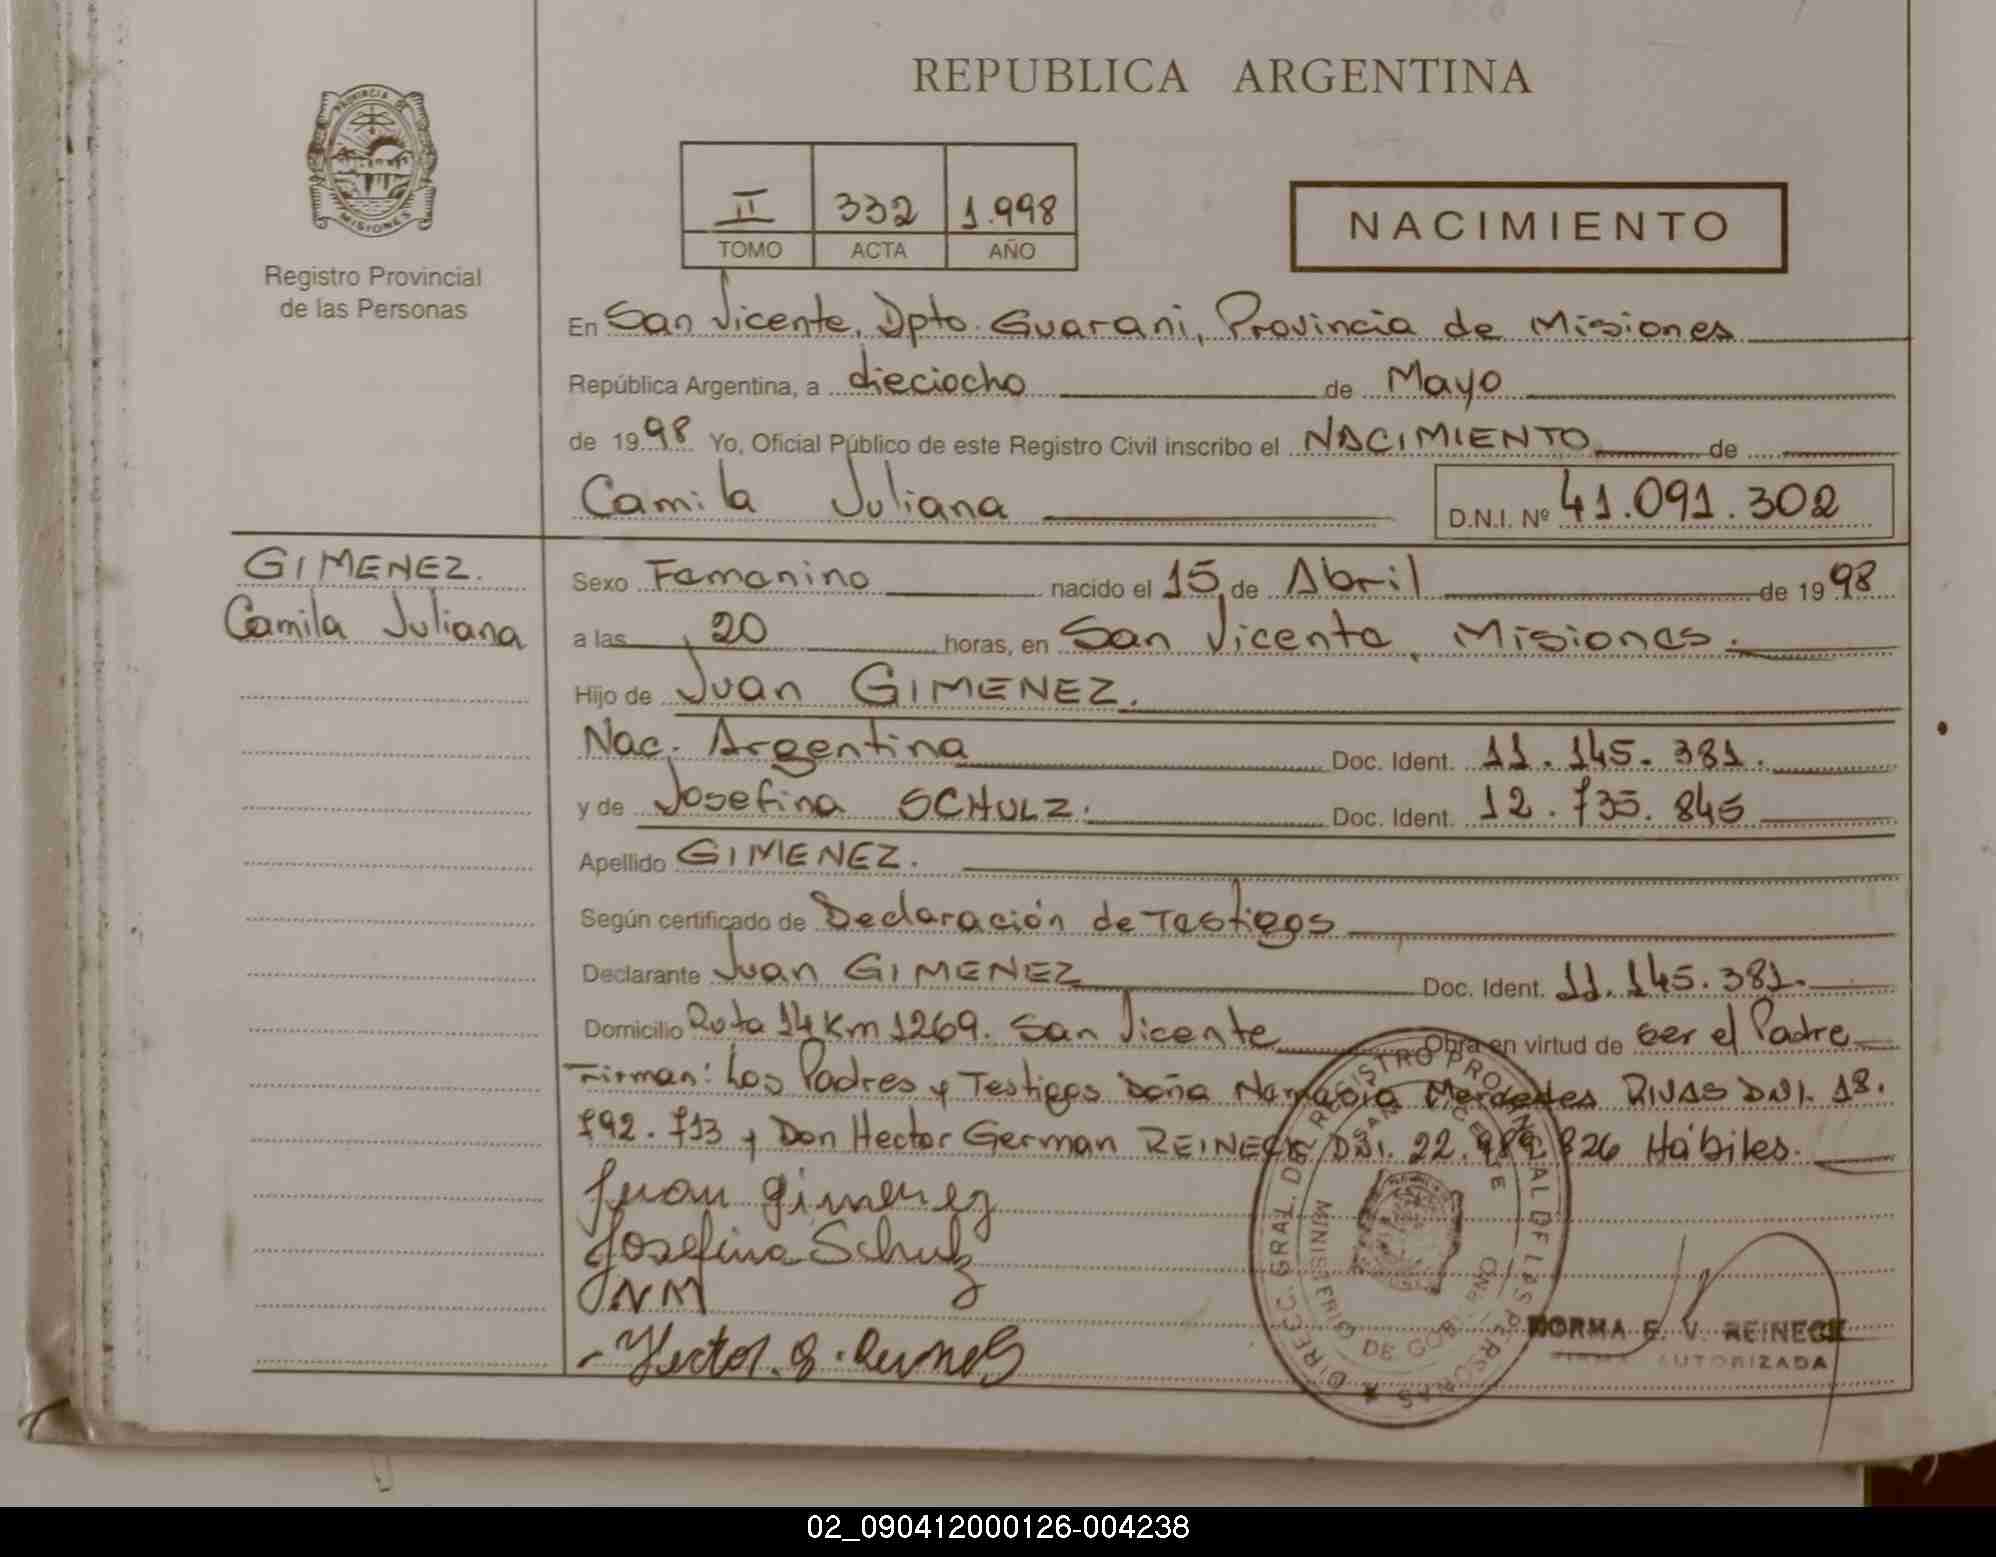 REPUBLICA ARGENTINA
PROVINCIA DE
MISIONES
Registro Provincial
de las Personas
II 332 1.998
TOMO ACTA AÑO
NACIMIENTO
En San Vicente, Dpto. Guarani, Provincia de Misiones
República Argentina, a dieciocho de Mayo
de 1998 Yo, Oficial Público de este Registro Civil inscribo el NACIMIENTO de
Camila Juliana D.N.I. Nº 41.091.302
GIMENEZ.
Camila Juliana
Sexo Femenino nacido el 15 de Abril de 1998
a las 20 horas, en San Vicente, Misiones.
Hijo de Juan GIMENEZ.
Nac. Argentina Doc. Ident. 11.145.381.
y de Josefina SCHULZ. Doc. Ident. 12.735.845
Apellido GIMENEZ.
Según certificado de Declaración de Testigos
Declarante Juan GIMENEZ Doc. Ident. 11.145.381.
Domicilio Ruta 14 Km 1269. San Vicente Obra en virtud de ser el Padre
Firman: Los Padres y Testigos Doña Mercedes RIVAS DNI. 18.
792.713 y Don Hector German REINECK DNI. 22. 826 Hábiles.
Juan gimenez
Josefina Schulz
NM
Hector. g.
DIRECC. GRAL. DEL REGISTRO PROVINCIAL DE LAS PERSONAS
SAN VICENTE
MINISTERIO DE GOB.
NORMA E. V. REINECK
FIRMA AUTORIZADA
02_090412000126-004238